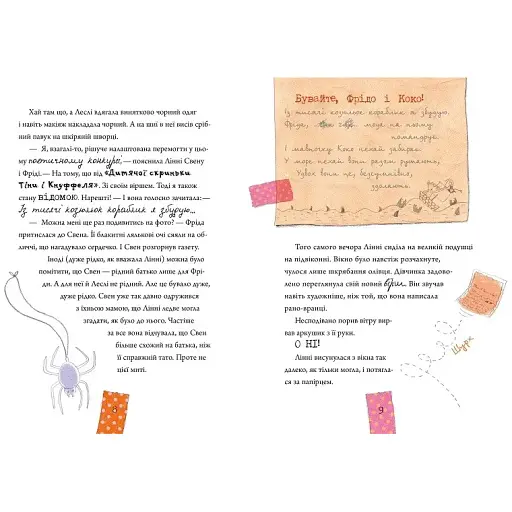 Хай там що, а Леслі вдягала винятково чорний одяг
і навіть макіяж накладала чорний. А на шиї в неї висів сріб-
ний павук на шкіряній шворці.
— Я, взагалі-то, рішуче налаштована перемогти у цьо-
му поетичному конкурсі, — пояснила Лінні Свену
і Фріді. — На тому, що від «Дитячої скриньки
Тіни і Кнуффеля». Зі своїм віршем. Тоді я також
стану ВІДОМОЮ. Нарешті! — І вона голосно зачитала: —
Із тисячі козульок кораблик я збудую...
— Можна мені ще раз подивитись на фото? — Фріда
притислася до Свена. Її блакитні лялькові очі сяяли на об-
личчі, що нагадувало сердечко. І Свен розгорнув газету.
Іноді (дуже рідко, як вважала Лінні) можна було
помітити, що Свен — рідний батько лише для Фрі-
ди. А для неї й Леслі не рідний. Але це бувало дуже,
дуже рідко. Свен уже так давно одружився
з їхньою мамою, що Лінні ледве могла
згадати, як було до нього. Частіше
за все вона відчувала, що Свен
більше схожий на батька, ніж
її справжній тато. Проте не
цієї миті.
Бувайте, Фрідо і Коко!
Із тисячі козульок кораблик я збудую,
Фріда,
моя на ньому
командує.
І мавпочку Коко нехай забирає
У море нехай вони разом рушають,
Того самого вечора Лінні сиділа на великій подушці
на підвіконні. Вікно було навстіж розчахнуте,
чулося лише шкрябання олівця. Дівчинка задово-
лено переглянула свій новий вірш. Він звучав
навіть художніше, ніж той, що вона написала
рано-вранці.
Несподівано порив вітру вир-
вав аркушик з її руки.
О НІ!
Лінні висунулася з вікна так
далеко, як тільки могла, і потягла-
ся за папірцем.
Шурх
9